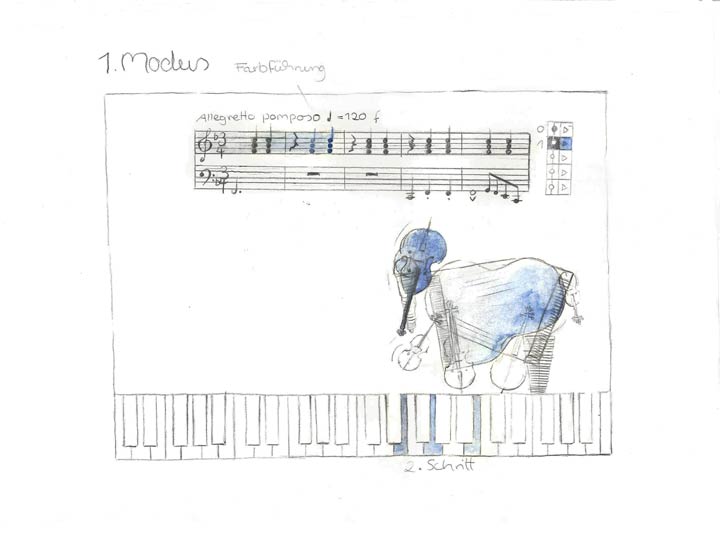 1. Modus
Farbführung
Allegretto pomposo ♩=120 f
3
4
0
1
3
4
2. Schritt